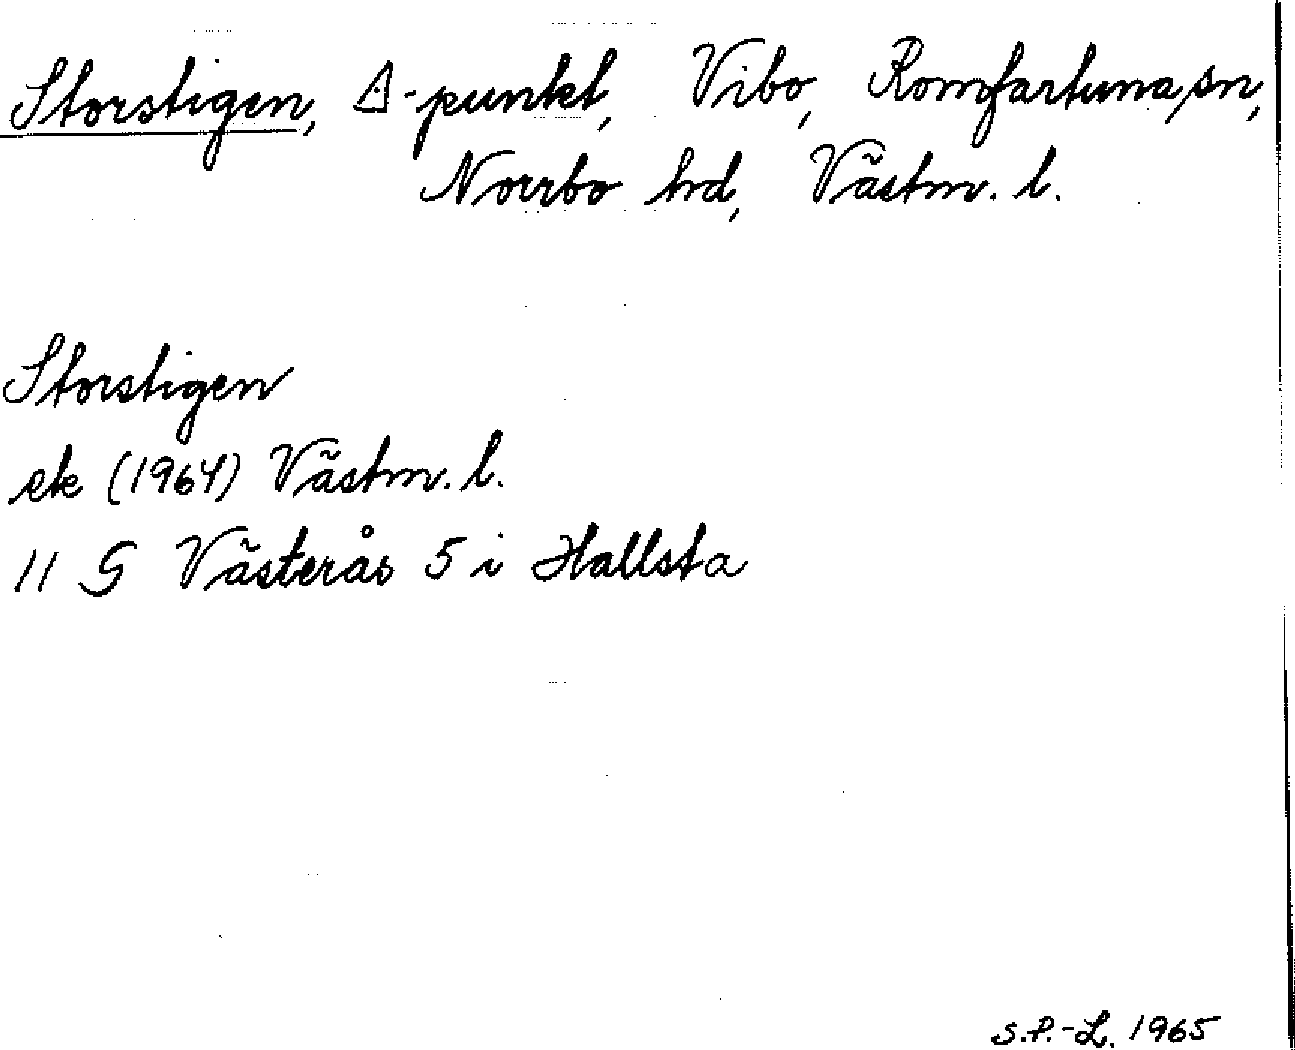 Storstigen, △-punkt, Vibo, Romfartuna sn,
Norrbo hd, Västm. l.
Storstigen
ek (1964) Västm. l.
11 G Västerås 5 i Hallsta
S.P.-L. 1965